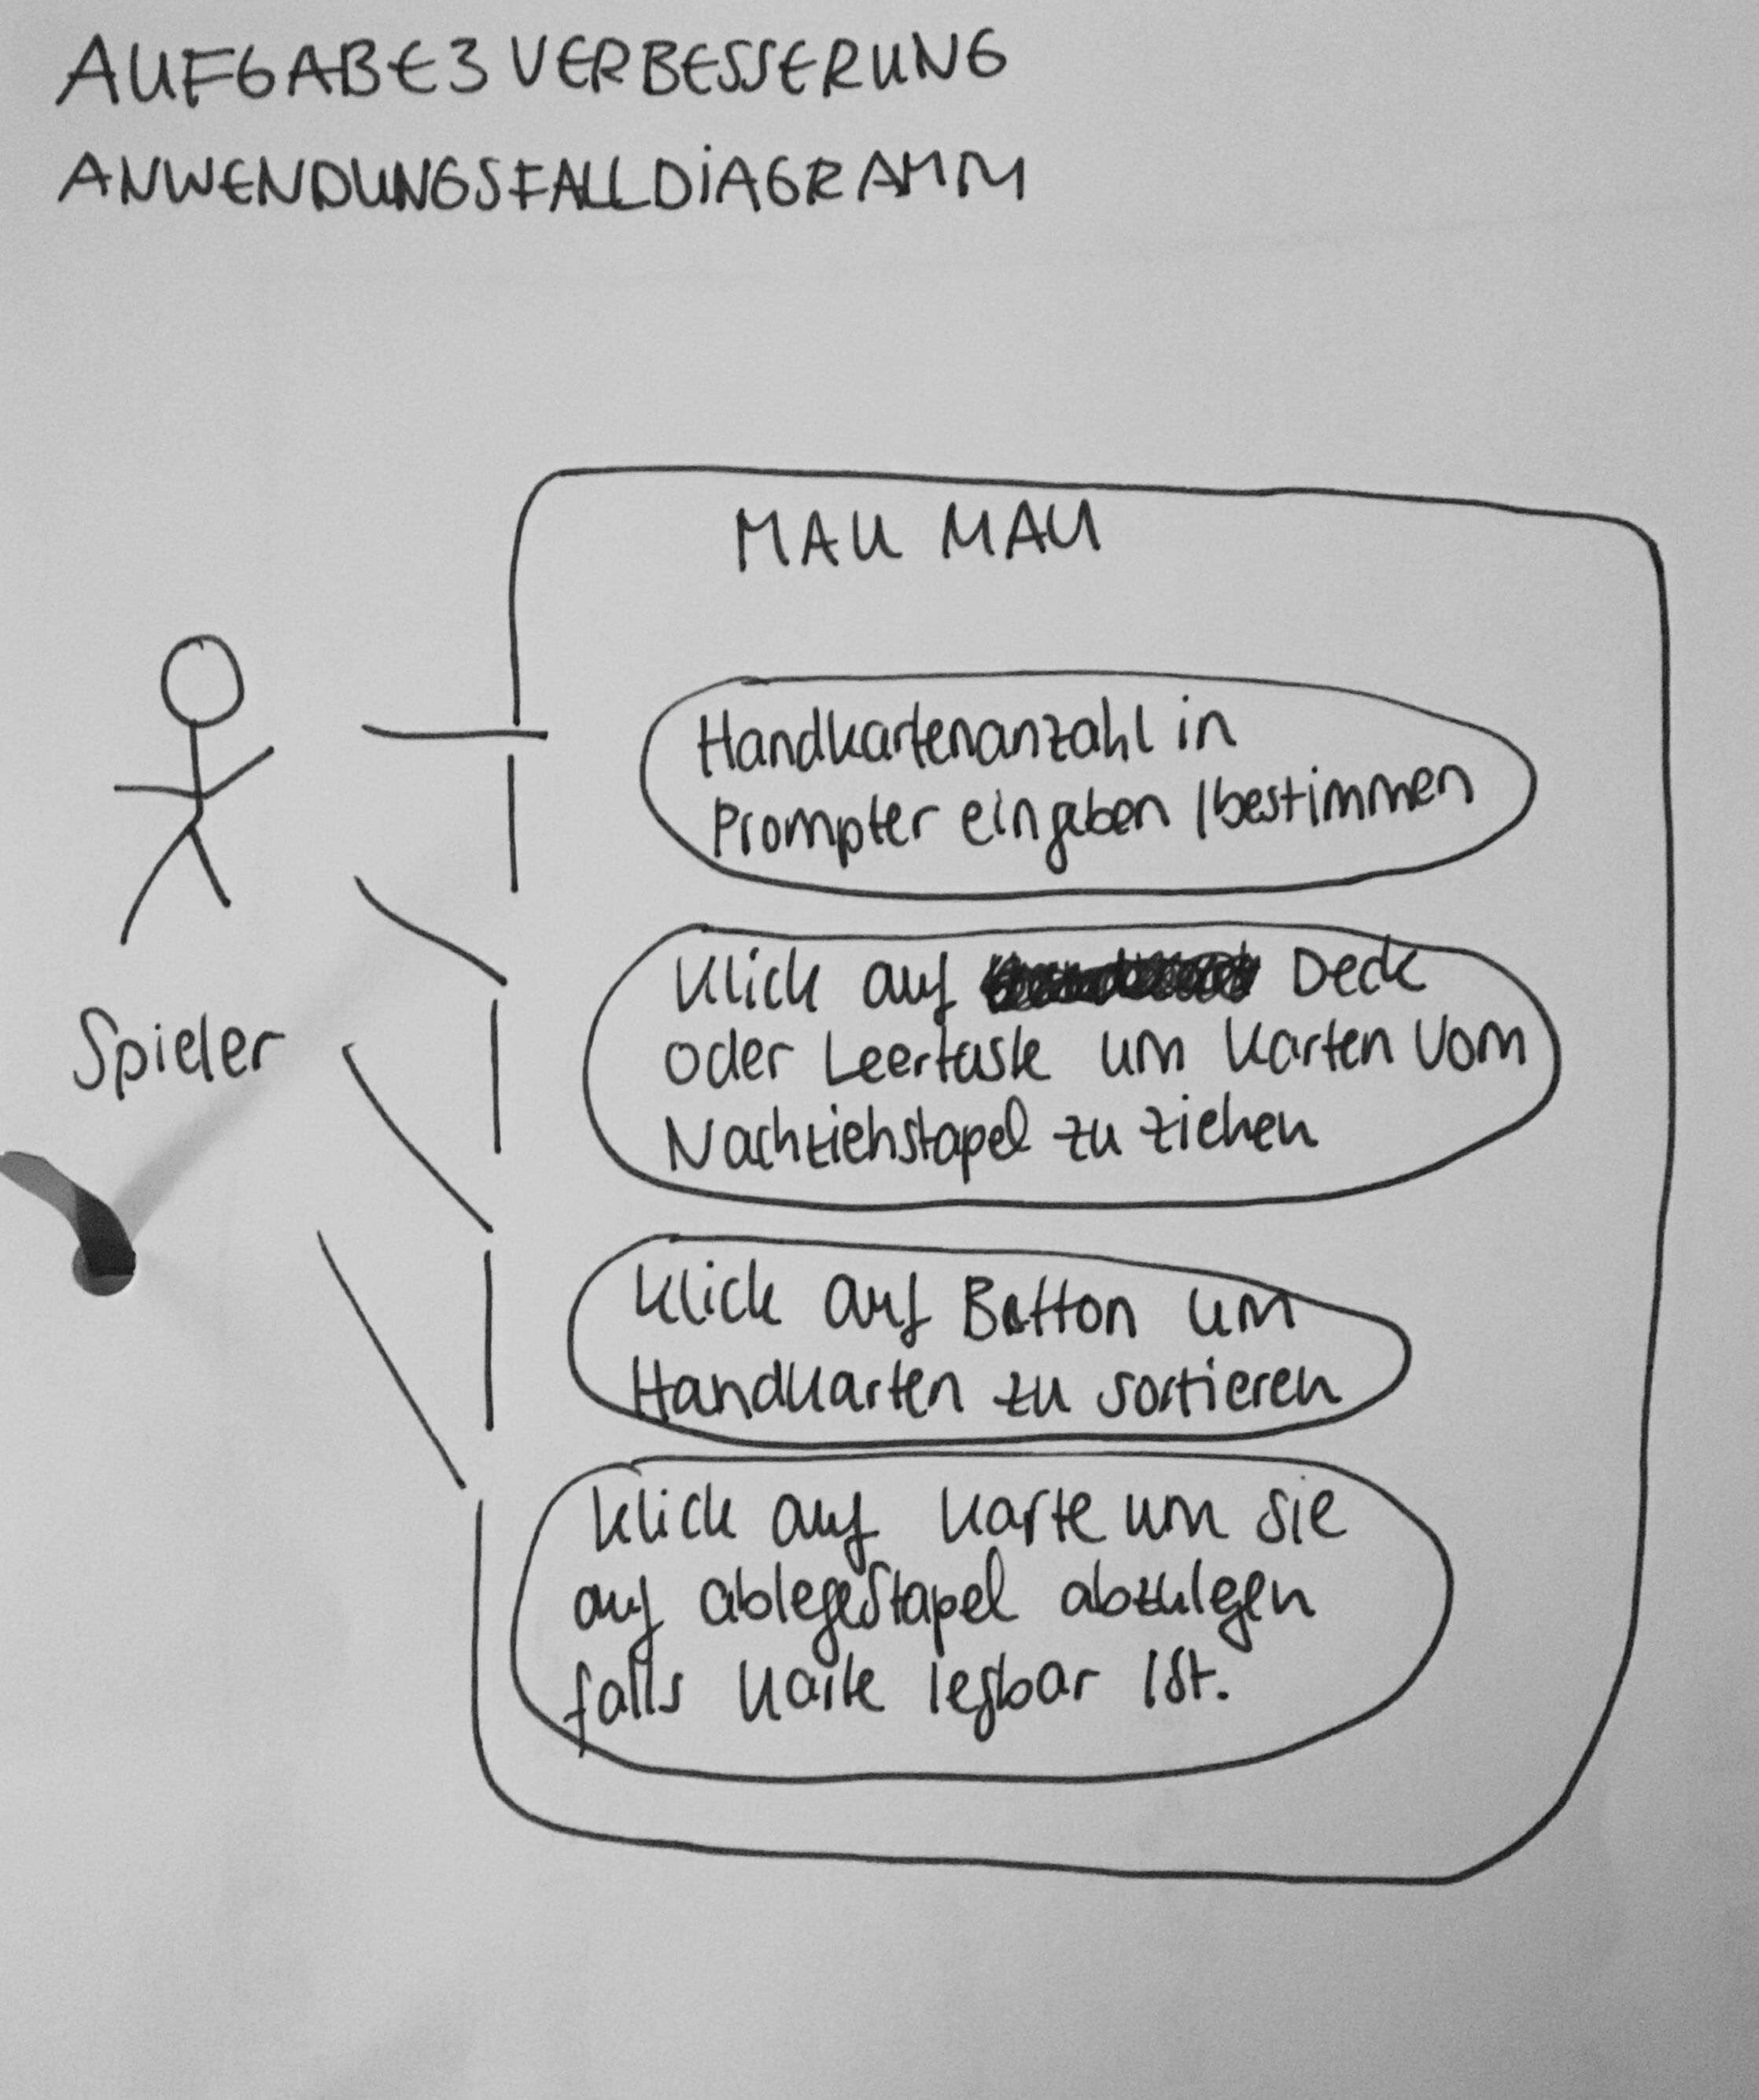 AUFGABE 3 VERBESSERUNG
ANWENDUNGSFALLDIAGRAMM
MAU MAU
Spieler
Handkartenanzahl in
Prompter eingeben / bestimmen
Klick auf Deck
oder Leertaste um Karten vom
Nachziehstapel zu ziehen
Klick auf Button um
Handkarten zu sortieren
Klick auf Karte um sie
auf ablegestapel abzulegen
falls Karte legbar ist.